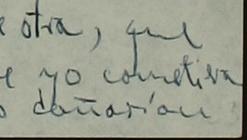 e otra, que
e yo cometiera
s dañarían